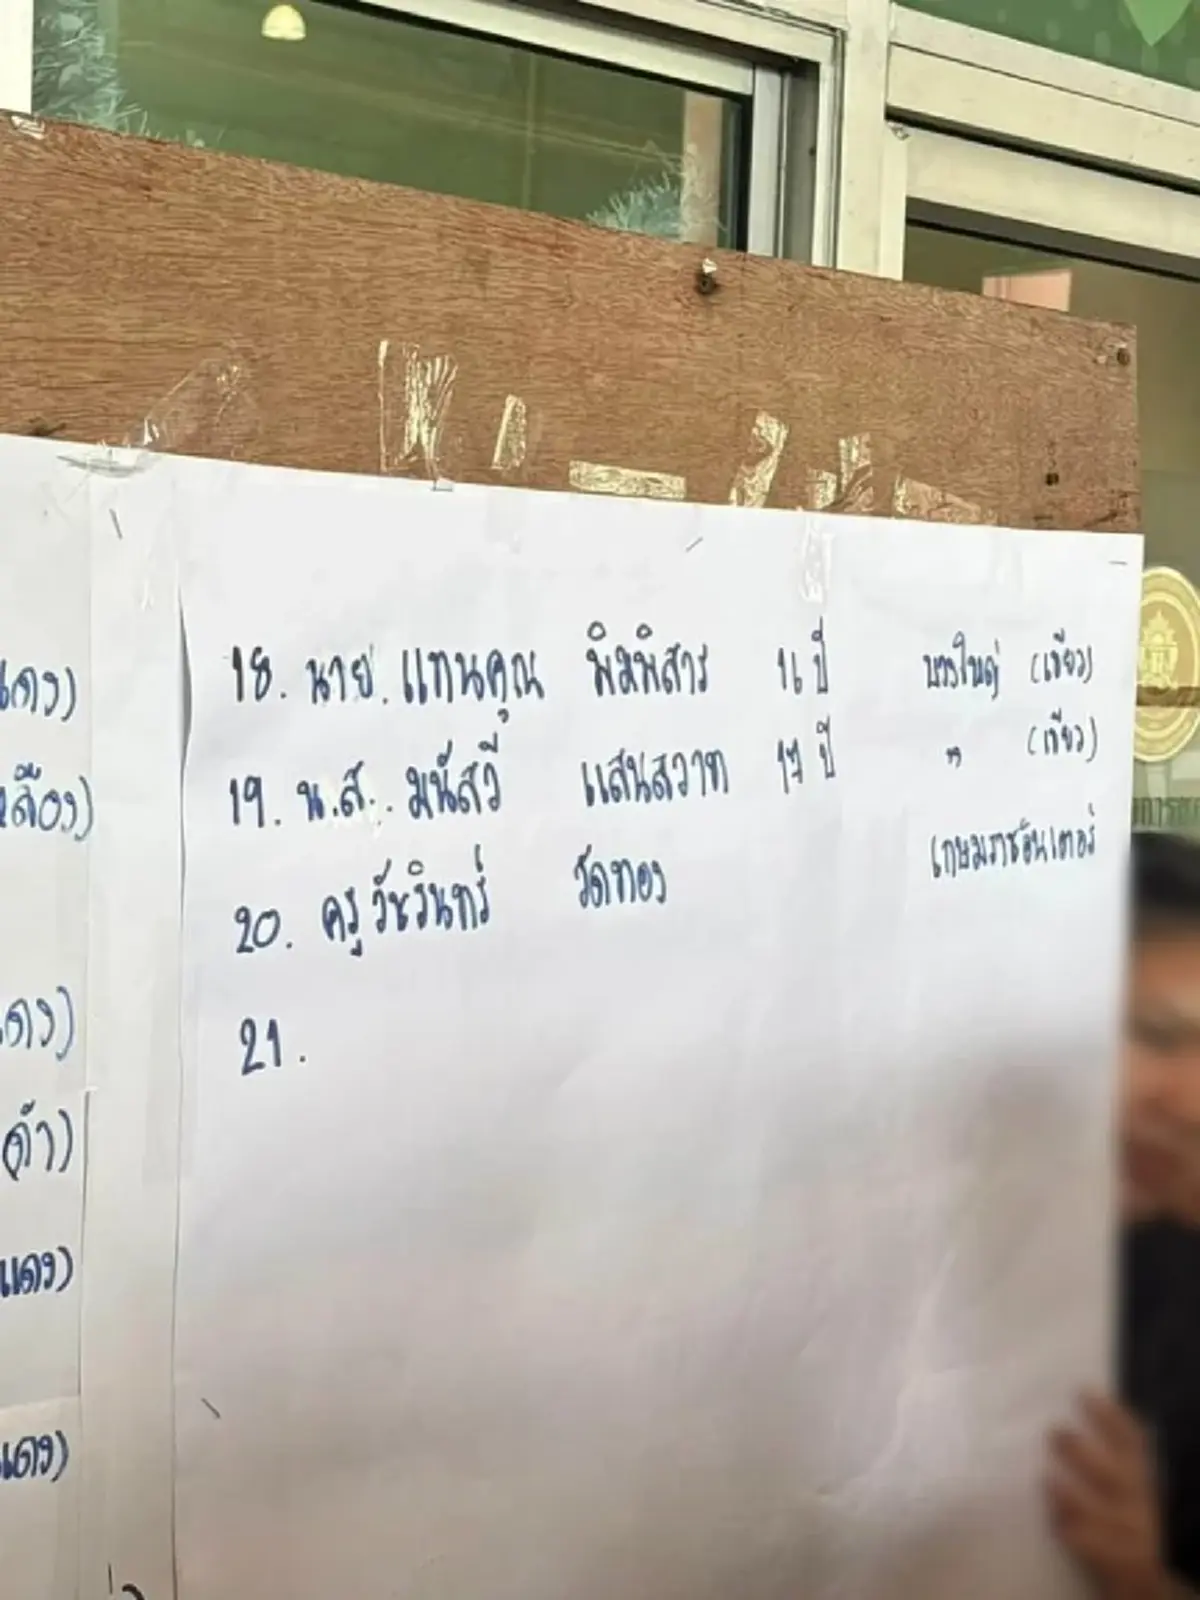 แดง)
18. นาย. แทนคุณ พิมพิสาร 16 ปี บางใหญ่ (เขียว)
เหลือง)
19. น.ส. มนัสวี แสนสวาท 17 ปี " (เขียว)
20. ครู วัชรินทร์ วัดทอง เกษมราชอินเตอร์
แดง)
21.
ดำ)
แดง)
แดง)